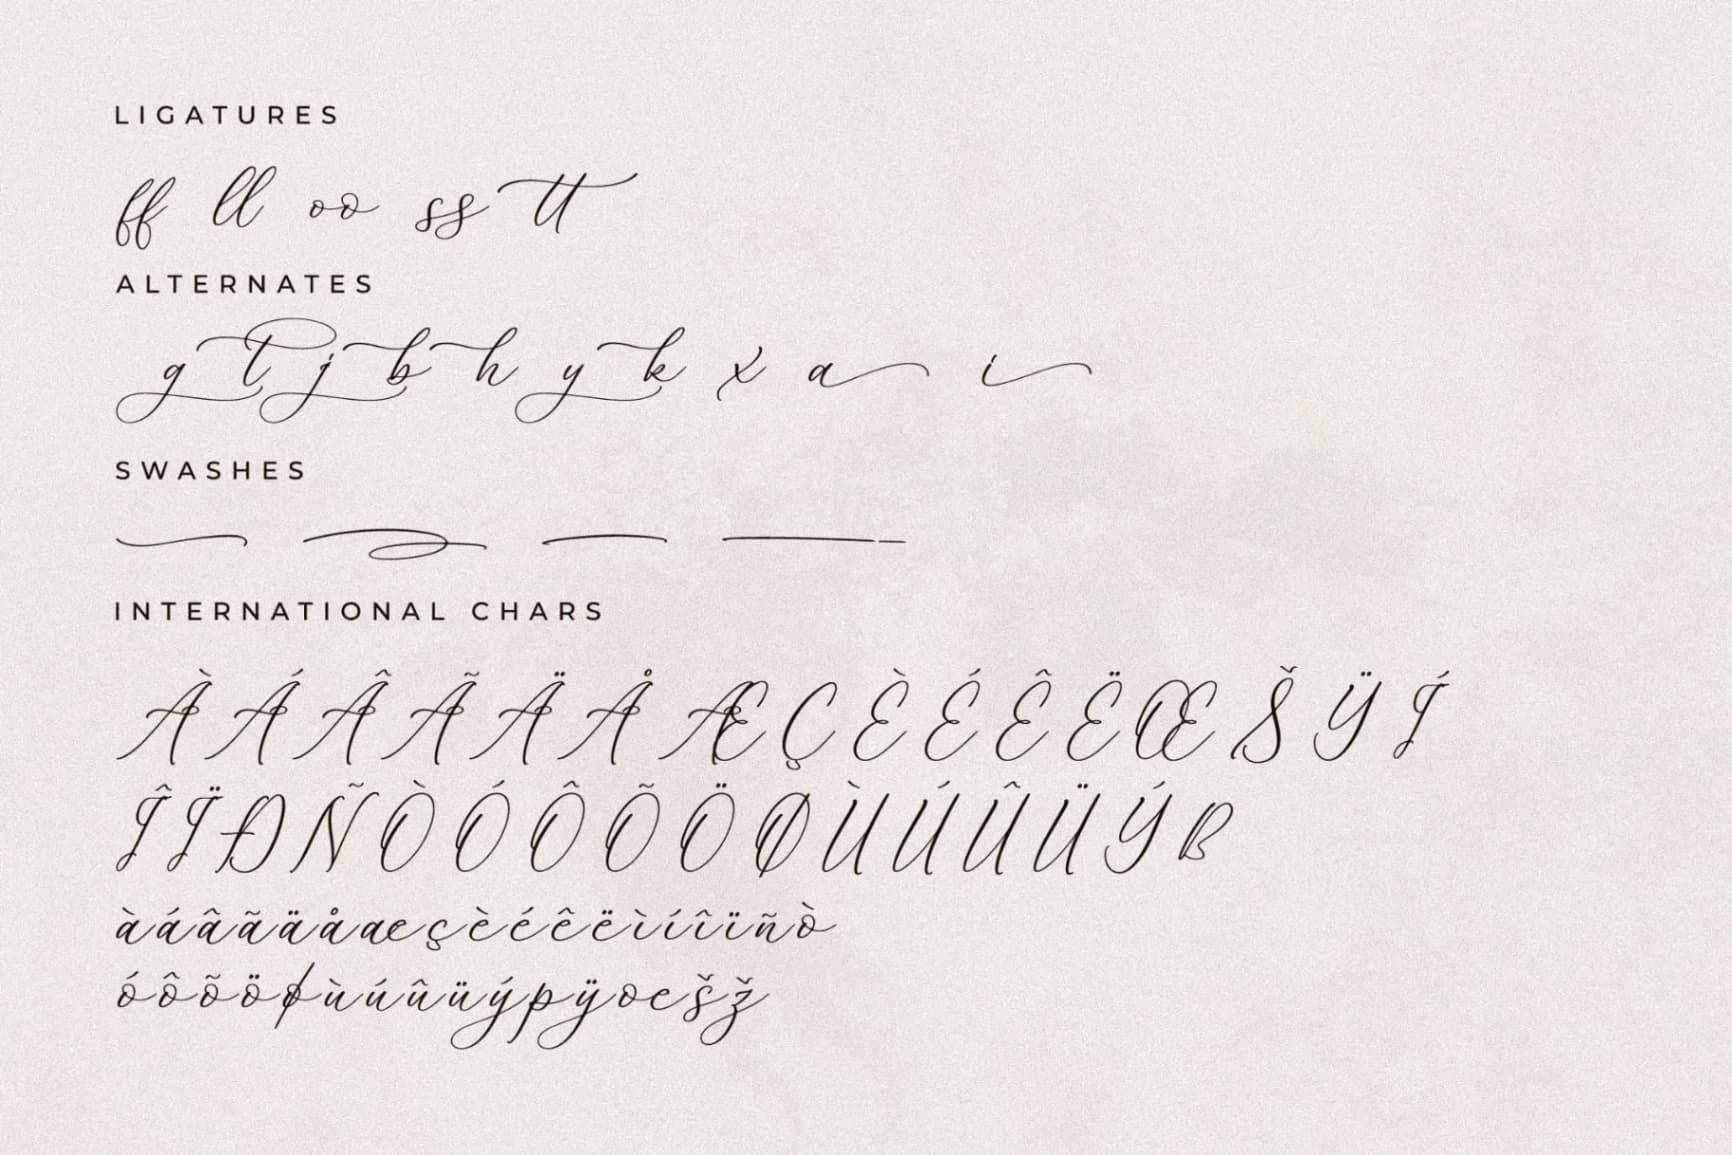 LIGATURES
ff ll oo ss tt
ALTERNATES
g t j b h y k x a i
SWASHES
INTERNATIONAL CHARS
À Á Â Ã Ä Å Æ Ç È É Ê Ë Œ Š Ÿ Í
Î Ï Ð Ñ Ò Ó Ô Õ Ö Ø Ù Ú Û Ü Ý ß
à á â ã ä å æ ç è é ê ë ì í î ï ñ ò
ó ô õ ö ø ù ú û ü ý þ ÿ œ š ž